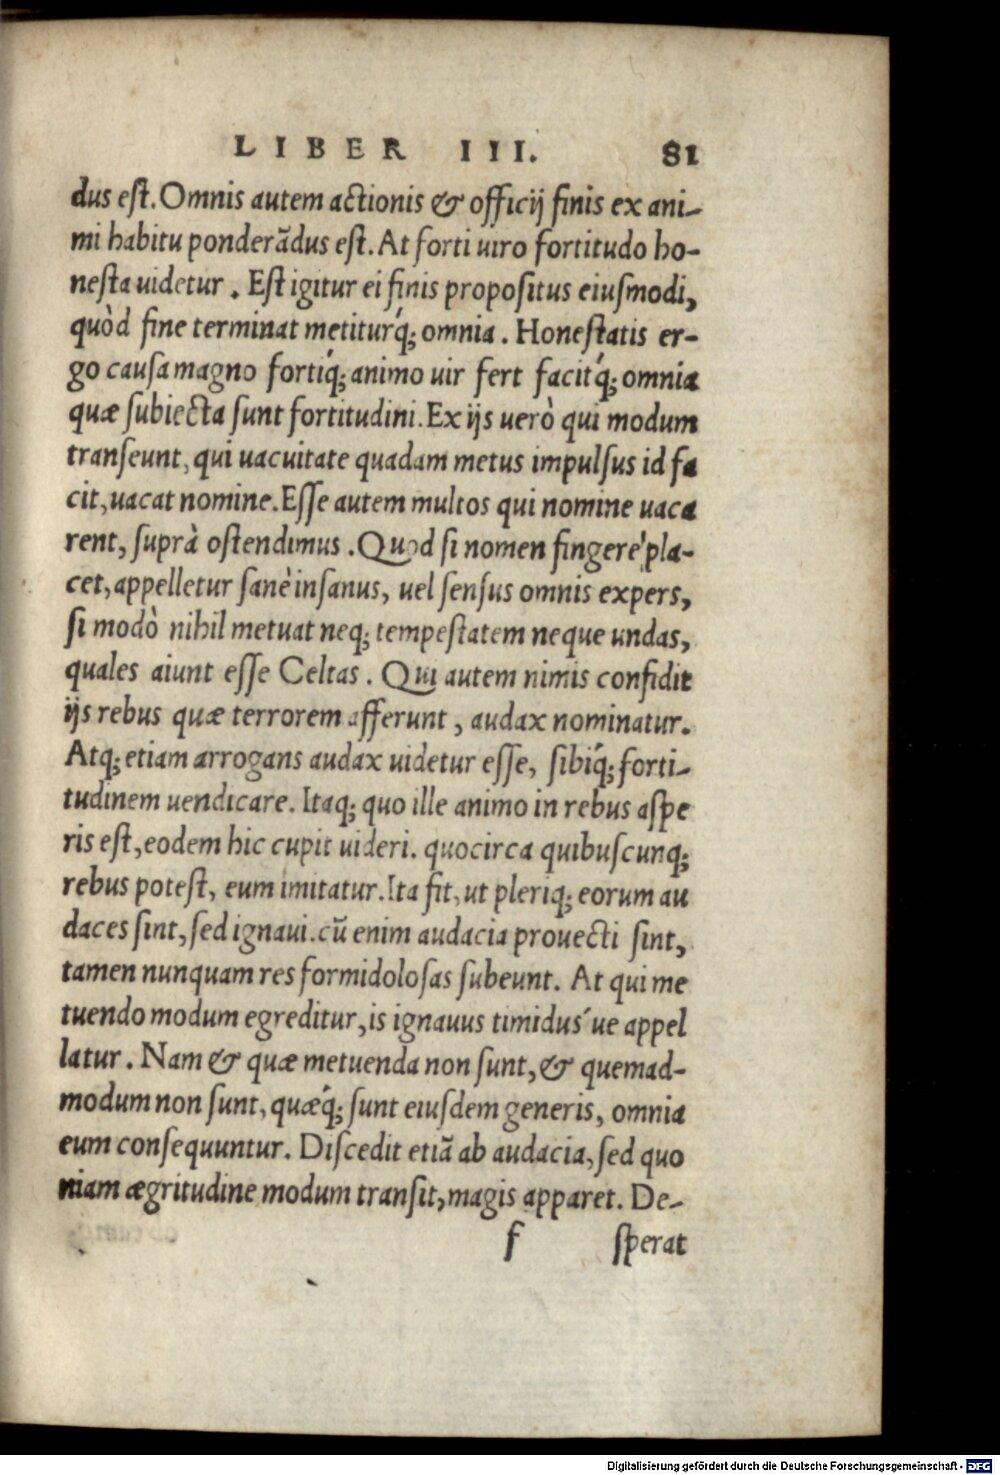 LIBER III. 81
dus est. Omnis autem actionis & officij finis ex ani-
mi habitu ponderãdus est. At forti uiro fortitudo ho-
nesta uidetur. Est igitur ei finis propositus eiusmodi,
quòd fine terminat metiturq́; omnia. Honestatis er-
go causa magno fortiq́; animo uir fert facitq́; omnia
quæ subiecta sunt fortitudini. Ex ijs uerò qui modum
transeunt, qui uacuitate quadam metus impulsus id fa
cit, uacat nomine. Esse autem multos qui nomine uaca
rent, suprà ostendimus. Quod si nomen fingere pla-
cet, appelletur sanè insanus, uel sensus omnis expers,
si modò nihil metuat neq; tempestatem neque undas,
quales aiunt esse Celtas. Qui autem nimis confidit
ijs rebus quæ terrorem afferunt, audax nominatur.
Atq; etiam arrogans audax uidetur esse, sibiq́; forti-
tudinem uendicare. Itaq; quo ille animo in rebus aspe
ris est, eodem hic cupit uideri. quocirca quibuscunq;
rebus potest, eum imitatur. Ita fit, ut pleriq; eorum au
daces sint, sed ignaui. cũ enim audacia prouecti sint,
tamen nunquam res formidolosas subeunt. At qui me
tuendo modum egreditur, is ignauus timidus´ue appel
latur. Nam & quæ metuenda non sunt, & quemad-
modum non sunt, quæq́; sunt eiusdem generis, omnia
eum consequuntur. Discedit etiã ab audacia, sed quo
niam ægritudine modum transit, magis apparet. De-
f sperat
Digitalisierung gefördert durch die Deutsche Forschungsgemeinschaft - DFG